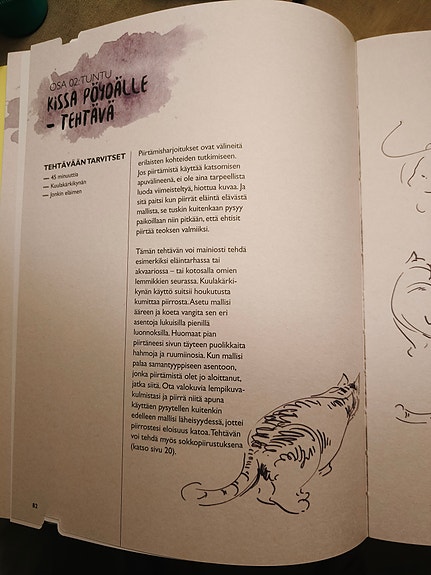 OSA 02: TUNTU
KISSA PÖYDÄLLE
– TEHTÄVÄ
TEHTÄVÄÄN TARVITSET
— 45 minuuttia
— Kuulakärkikynän
— Jonkin eläimen
Piirtämisharjoitukset ovat välineitä
erilaisten kohteiden tutkimiseen.
Jos piirtämistä käyttää katsomisen
apuvälineenä, ei ole aina tarpeellista
luoda viimeisteltyä, hiottua kuvaa. Ja
sitä paitsi kun piirrät eläintä elävästä
mallista, se tuskin kuitenkaan pysyy
paikoillaan niin pitkään, että ehtisit
piirtää teoksen valmiiksi.
Tämän tehtävän voi mainiosti tehdä
esimerkiksi eläintarhassa tai
akvaariossa – tai kotosalla omien
lemmikkien seurassa. Kuulakärki-
kynän käyttö suitsii houkutusta
kumittaa piirrosta. Asetu mallisi
ääreen ja koeta vangita sen eri
asentoja lukuisilla pienillä
luonnoksilla. Huomaat pian
piirtäneesi sivun täyteen puolikkaita
hahmoja ja ruumiinosia. Kun mallisi
palaa samantyyppiseen asentoon,
jonka piirtämistä olet jo aloittanut,
jatka siitä. Ota valokuvia lempikuva-
kulmistasi ja piirrä niitä apuna
käyttäen pysytellen kuitenkin
edelleen mallisi läheisyydessä, jottei
piirrostesi eloisuus katoa. Tehtävän
voi tehdä myös sokkopiirustuksena
(katso sivu 20).
82